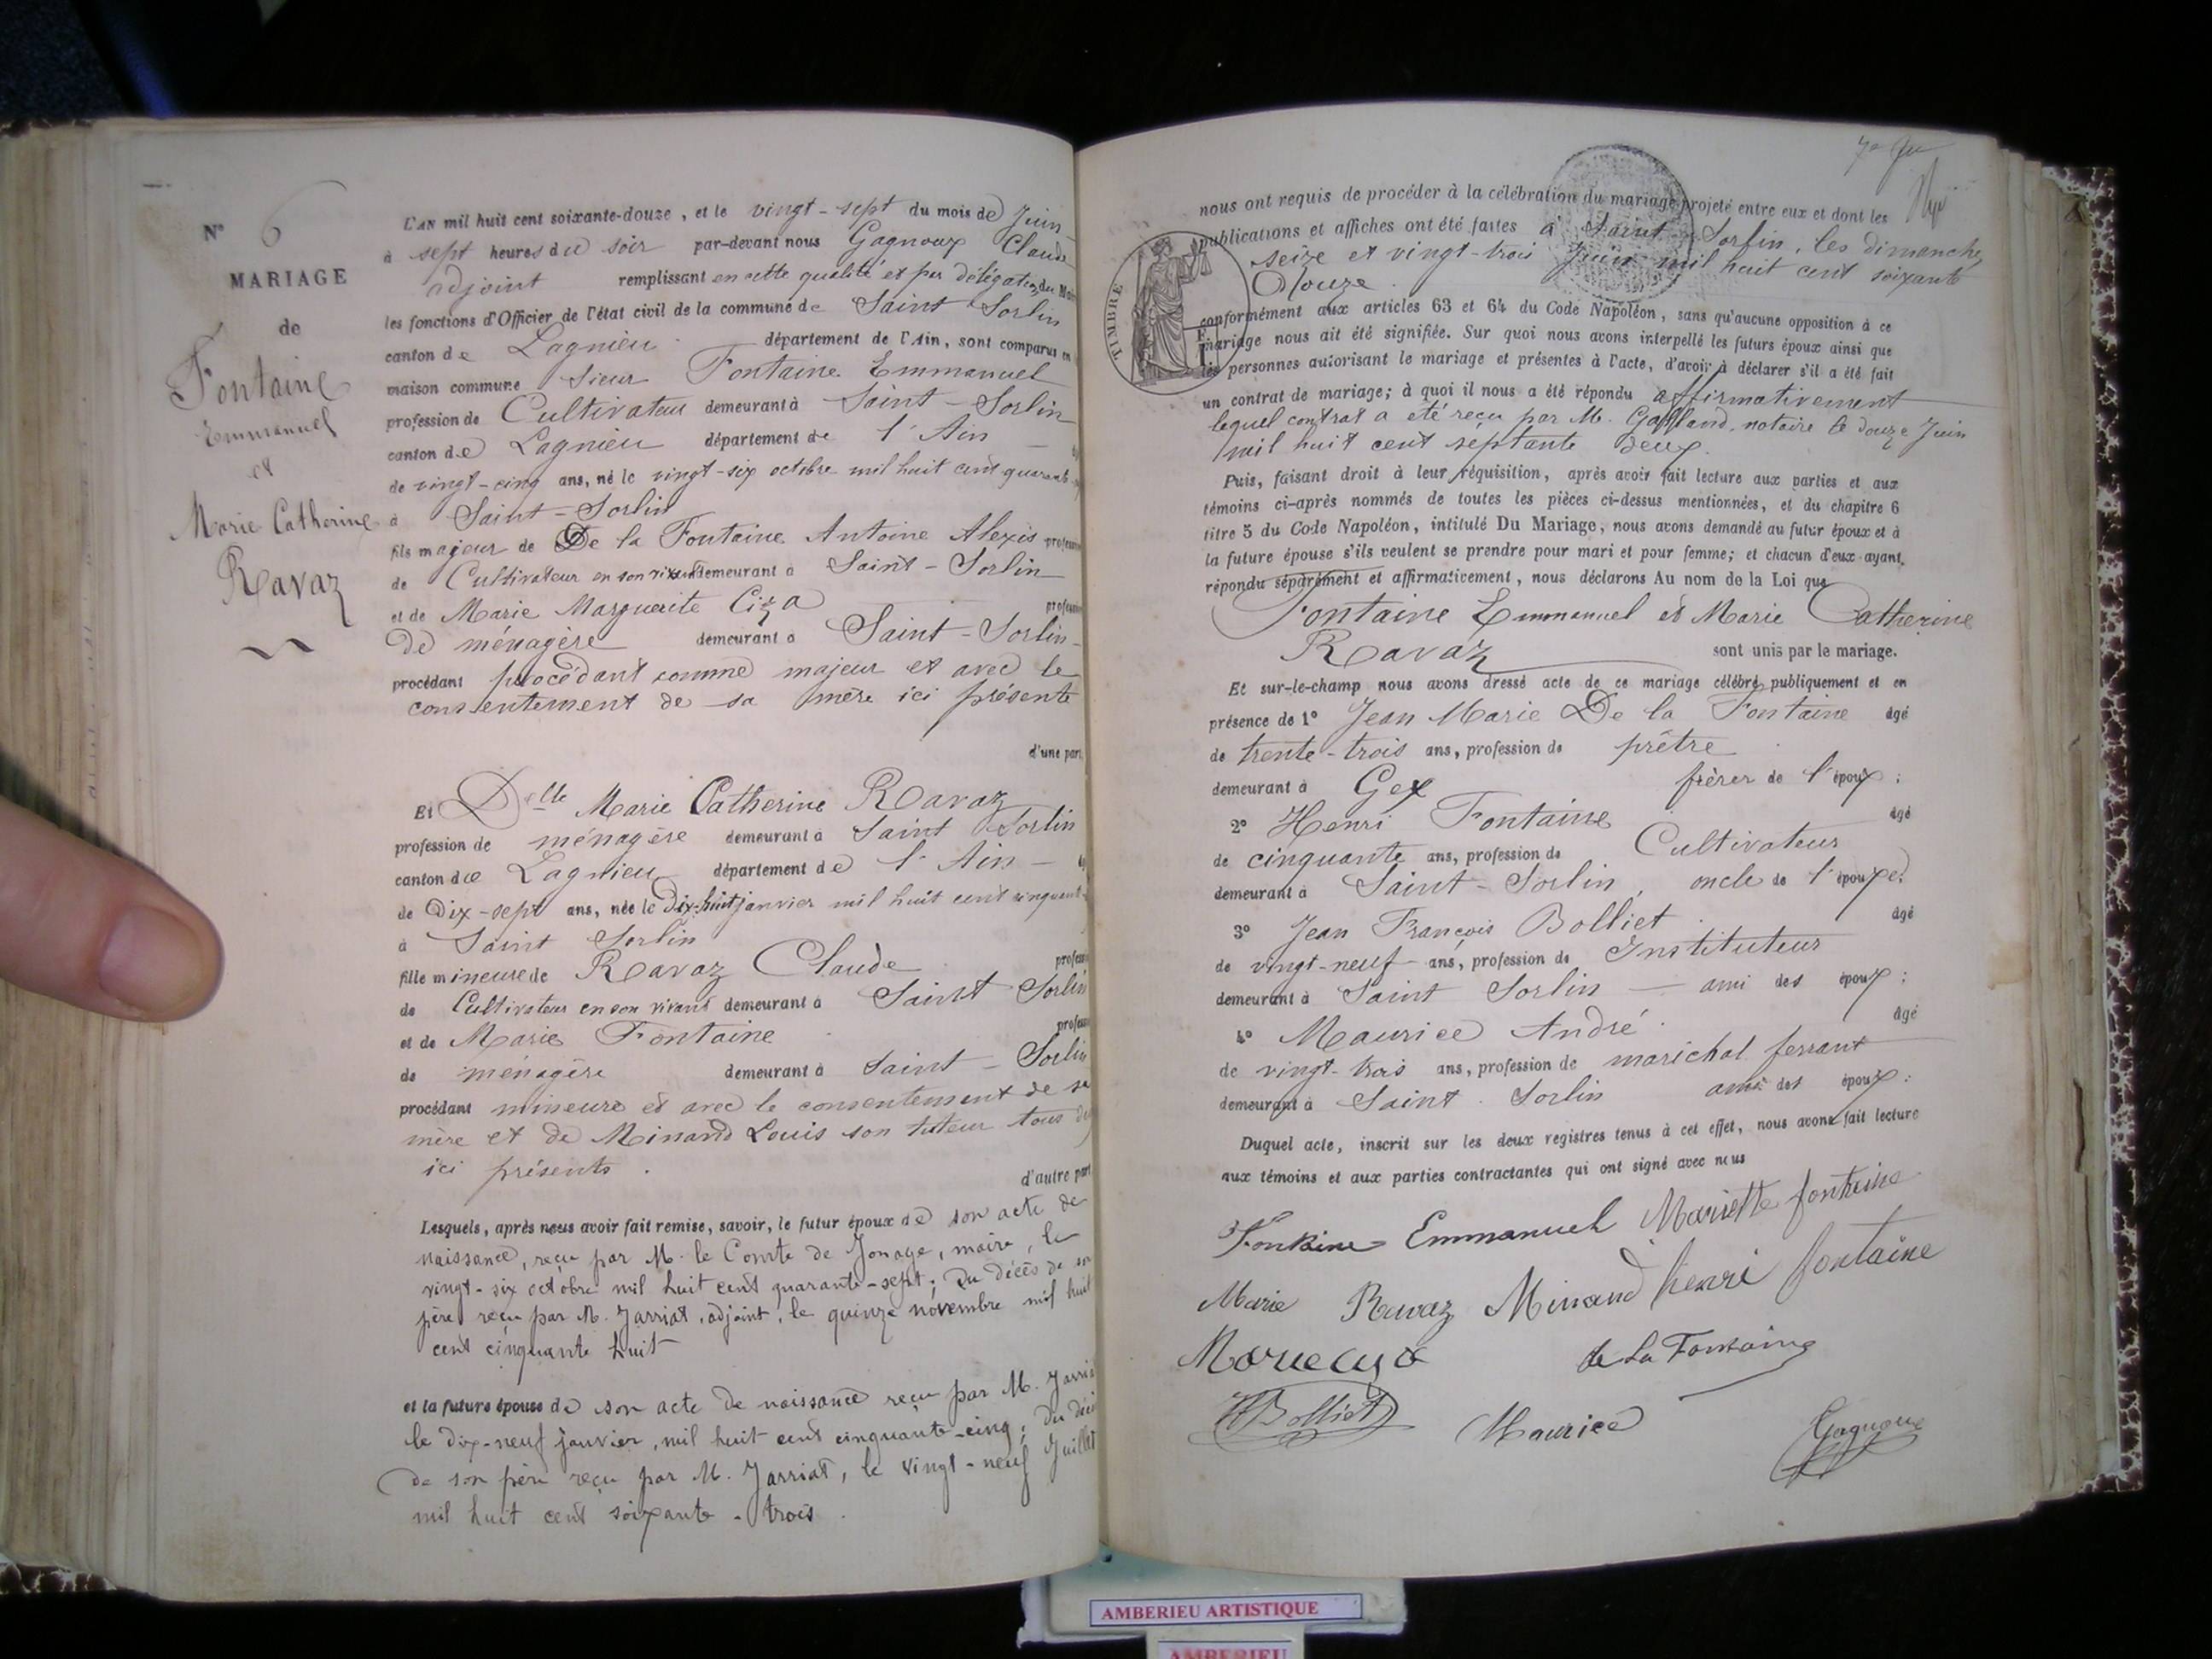 N° 6
MARIAGE
de
Fontaine
Emmanuel
et
Marie Catherine
Ravaz
L'AN mil huit cent soixante-douze, et le vingt-sept du mois de Juin
à sept heures du soir par-devant nous Gagnoux Claude
adjoint remplissant en cette qualité et par délégation du
les fonctions d'Officier de l'état civil de la commune de Saint Sorlin
canton de Lagnieu département de l'Ain, sont comparus en
maison commune Sieur Fontaine Emmanuel
profession de Cultivateur demeurant à Saint-Sorlin
canton de Lagnieu département de l'Ain
de vingt-cinq ans, né le vingt-six octobre mil huit cent quarante
à Saint-Sorlin
fils majeur de De la Fontaine Antoine Alexis
de Cultivateur en son vivant demeurant à Saint-Sorlin
et de Marie Marguerite Ciza
de ménagère demeurant à Saint-Sorlin
procédant procédant comme majeur et avec le
consentement de sa mère ici présente
d'une part
Et Delle Marie Catherine Ravaz
profession de ménagère demeurant à Saint Sorlin
canton de Lagnieu département de l'Ain
de Dix-sept ans, née le Dix-huit janvier mil huit cent cinquante
à Saint Sorlin
fille mineure de Ravaz Claude
de Cultivateur en son vivant demeurant à Saint Sorlin
et de Marie Fontaine
de ménagère demeurant à Saint-Sorlin
procédant mineure et avec le consentement de sa
mère et de Minand Louis son tuteur tous
ici présents.
d'autre part
Lesquels, après nous avoir fait remise, savoir, le futur époux de son acte de
naissance, reçu par M. le Comte de Jonage, maire, le
vingt-six octobre mil huit cent quarante-sept; Du décès de son
père reçu par M. Jarriat, adjoint, le quinze novembre mil huit
cent cinquante huit
et la future épouse de son acte de naissance reçu par M.
le dix-neuf janvier, mil huit cent cinquante-cinq; Du
de son père reçu par M. Jarriat, le vingt-neuf Juillet
mil huit cent soixante-trois.
nous ont requis de procéder à la célébration du mariage projeté entre eux et dont les
publications et affiches ont été faites à Saint-Sorlin, les dimanche
seize et vingt-trois Juin mil huit cent soixante
Douze.
TIMBRE
conformément aux articles 63 et 64 du Code Napoléon, sans qu'aucune opposition à ce
mariage nous ait été signifiée. Sur quoi nous avons interpellé les futurs époux ainsi que
les personnes autorisant le mariage et présentes à l'acte, d'avoir à déclarer s'il a été fait
un contrat de mariage; à quoi il nous a été répondu affirmativement
lequel contrat a été reçu par M. Galland, notaire le douze Juin
mil huit cent septante deux.
Puis, faisant droit à leur réquisition, après avoir fait lecture aux parties et aux
témoins ci-après nommés de toutes les pièces ci-dessus mentionnées, et du chapitre 6
titre 5 du Code Napoléon, intitulé Du Mariage, nous avons demandé au futur époux et à
la future épouse s'ils veulent se prendre pour mari et pour femme; et chacun d'eux ayant
répondu séparément et affirmativement, nous déclarons Au nom de la Loi que
Fontaine Emmanuel et Marie Catherine
Ravaz sont unis par le mariage.
Et sur-le-champ nous avons dressé acte de ce mariage célébré publiquement et en
présence de 1° Jean Marie De la Fontaine âgé
de trente-trois ans, profession de prêtre
demeurant à Gex frèrer de l'époux;
2° Henri Fontaine âgé
de cinquante ans, profession de Cultivateur
demeurant à Saint-Sorlin, oncle de l'épouxe.
3° Jean François Bolliet âgé
de vingt-neuf ans, profession de Instituteur
demeurant à Saint Sorlin — ami des époux;
4° Maurice André âgé
de vingt-trois ans, profession de marichal ferrant
demeurant à Saint Sorlin ami des époux.
Duquel acte, inscrit sur les deux registres tenus à cet effet, nous avons fait lecture
aux témoins et aux parties contractantes qui ont signé avec nous
Fontaine Emmanuel Mariette fontaine
Marie Ravaz Minand henri fontaine
de la Fontaine
Bolliet Maurice Gagnoux
AMBERIEU ARTISTIQUE
AMBERIEU